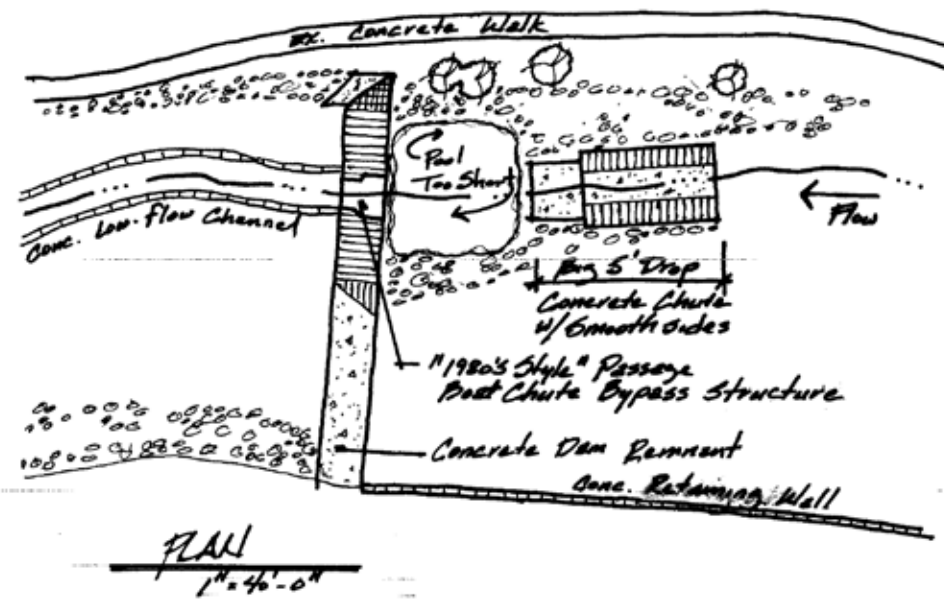 Ex. Concrete Walk
Pool
Too Short
Flow
Conc. Low-Flow Channel
Big 5' Drop
Concrete Chute
w/ Smooth sides
"1980's Style" Passage
Boat Chute Bypass Structure
Concrete Dam Remnant
Conc. Retaining Wall
PLAN
1" = 40'-0"